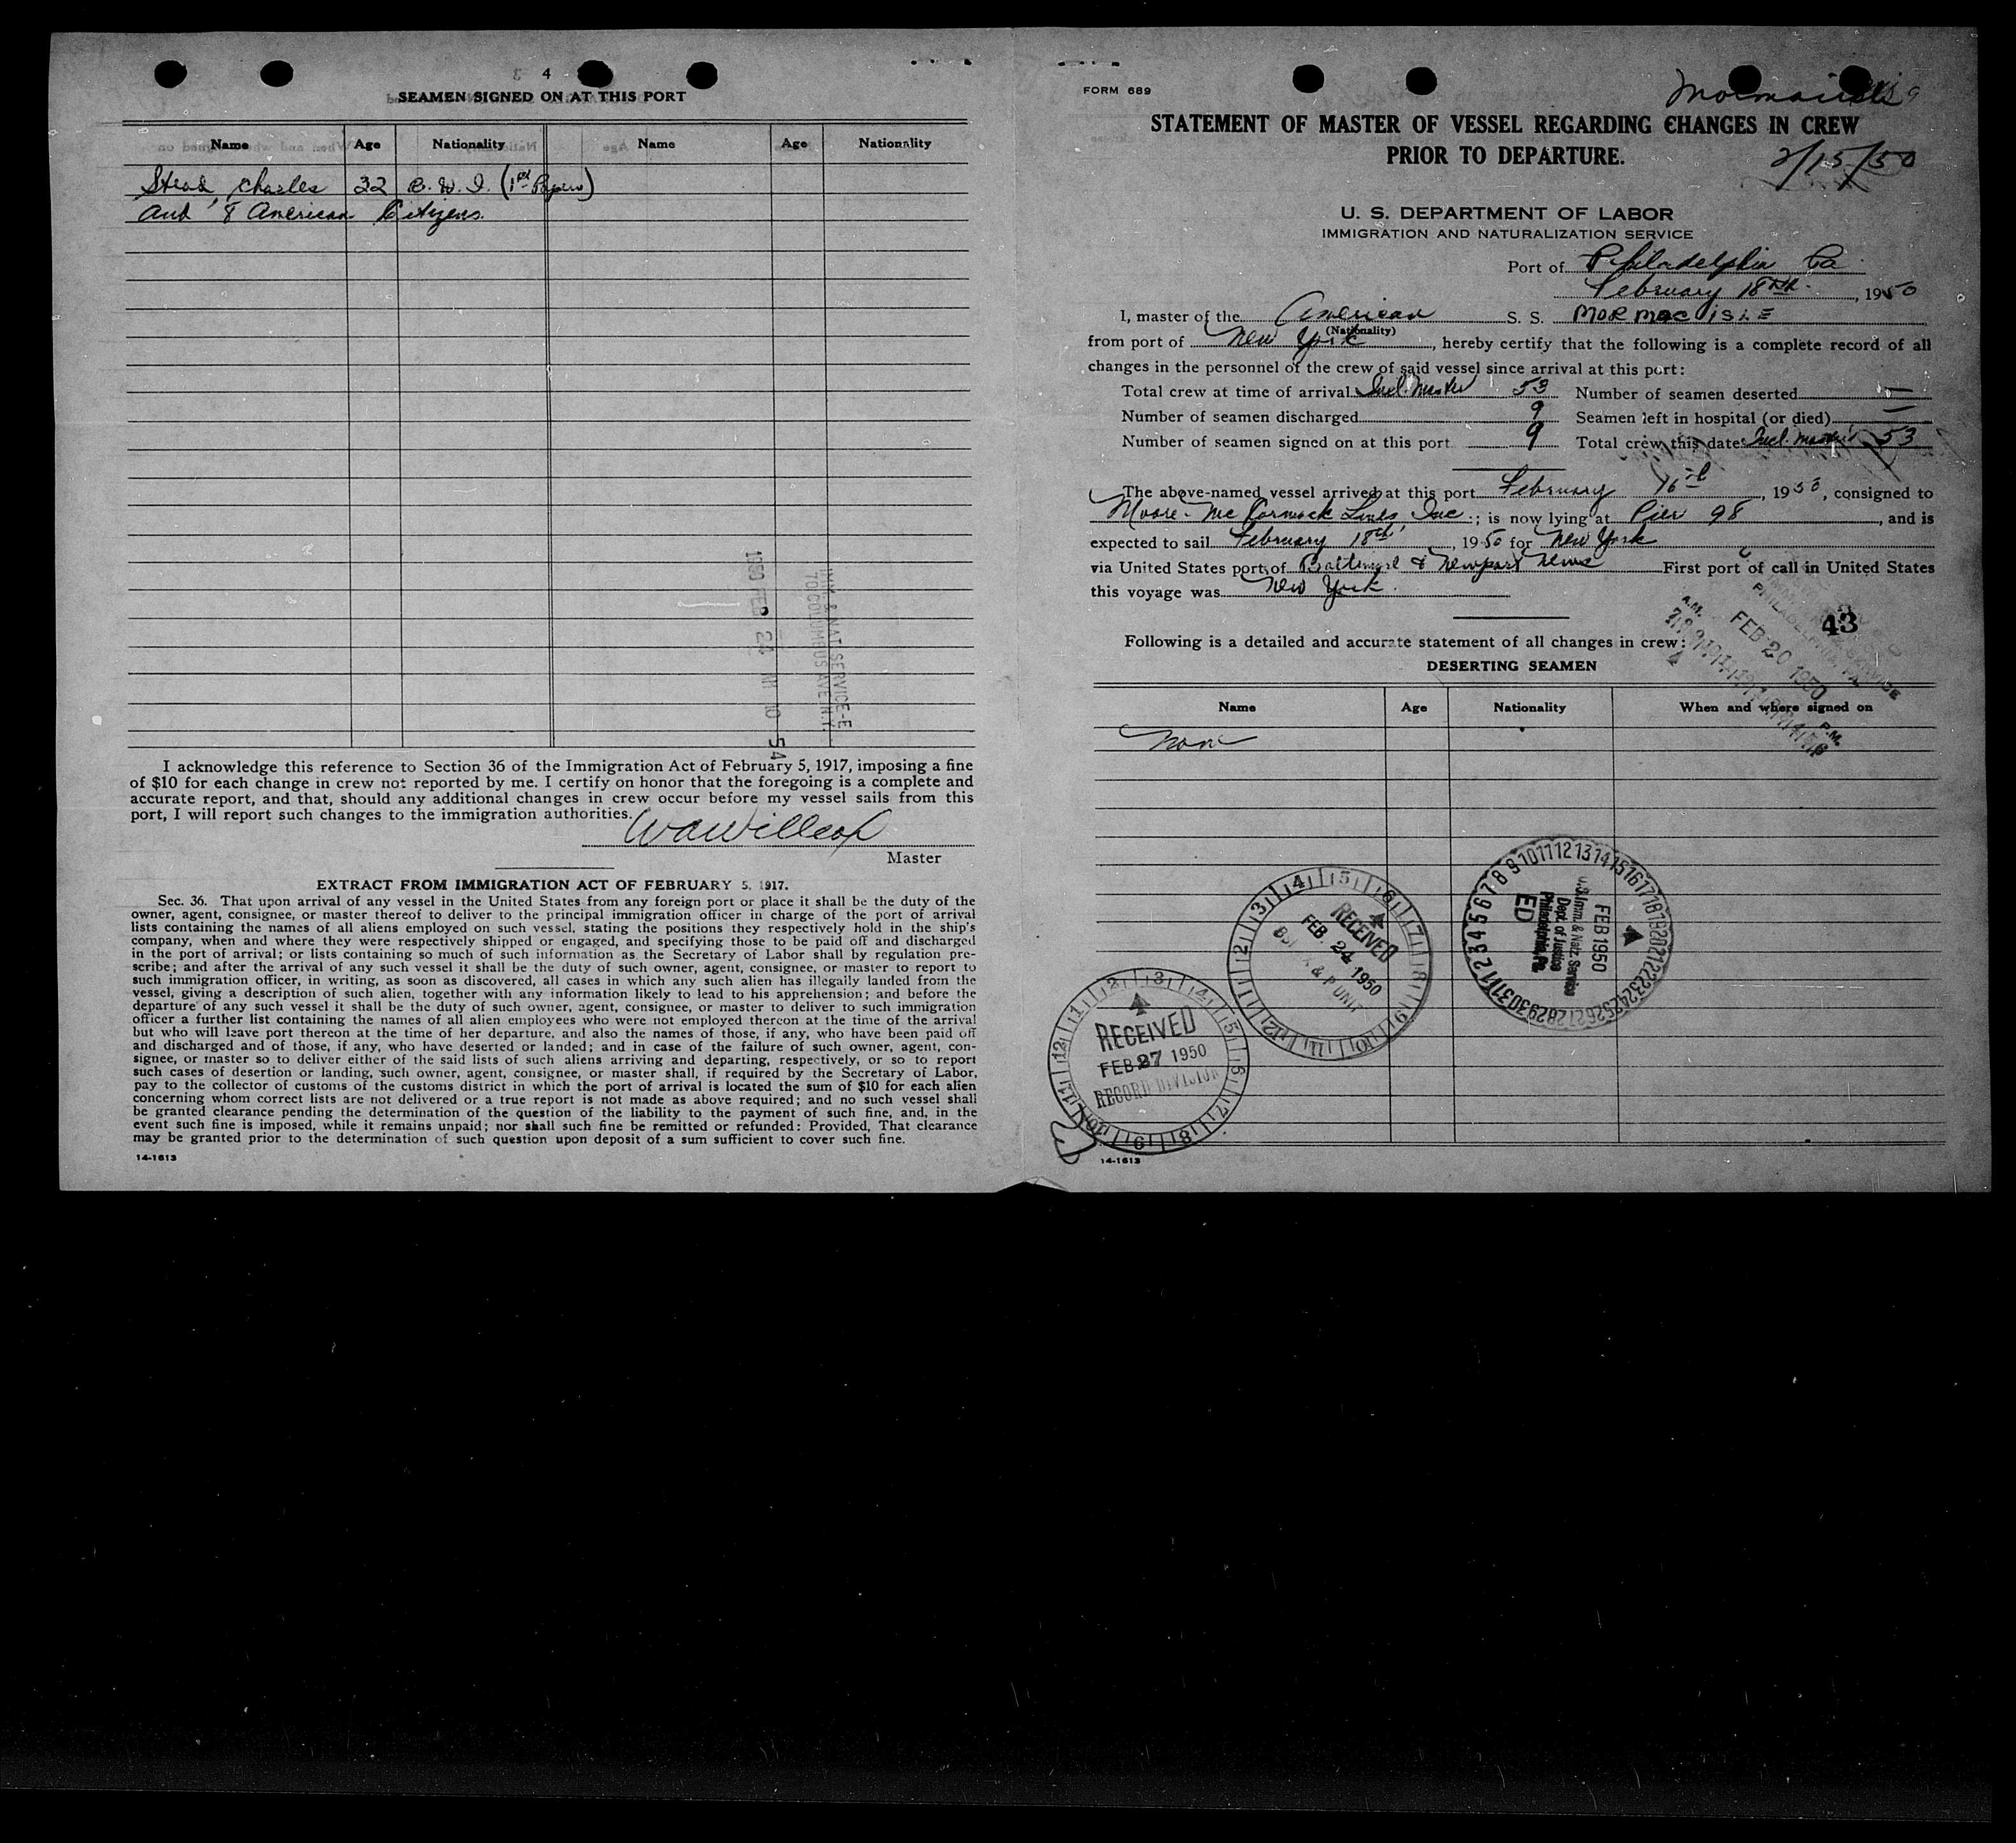 4
SEAMEN SIGNED ON AT THIS PORT
Name Age Nationality Name Age Nationality
Stead, Charles 32 B. W. I. (1st Papers)
and 8 American Citizens.
1950 FEB 24 AM 10 54
IMM. & NAT. SERVICE-E
70 COLUMBUS AVE. N.Y.
I acknowledge this reference to Section 36 of the Immigration Act of February 5, 1917, imposing a fine
of $10 for each change in crew not reported by me. I certify on honor that the foregoing is a complete and
accurate report, and that, should any additional changes in crew occur before my vessel sails from this
port, I will report such changes to the immigration authorities.
WaWillcox
Master
EXTRACT FROM IMMIGRATION ACT OF FEBRUARY 5, 1917.
Sec. 36. That upon arrival of any vessel in the United States from any foreign port or place it shall be the duty of the
owner, agent, consignee, or master thereof to deliver to the principal immigration officer in charge of the port of arrival
lists containing the names of all aliens employed on such vessel, stating the positions they respectively hold in the ship's
company, when and where they were respectively shipped or engaged, and specifying those to be paid off and discharged
in the port of arrival; or lists containing so much of such information as the Secretary of Labor shall by regulation pre-
scribe; and after the arrival of any such vessel it shall be the duty of such owner, agent, consignee, or master to report to
such immigration officer, in writing, as soon as discovered, all cases in which any such alien has illegally landed from the
vessel, giving a description of such alien, together with any information likely to lead to his apprehension; and before the
departure of any such vessel it shall be the duty of such owner, agent, consignee, or master to deliver to such immigration
officer a further list containing the names of all alien employees who were not employed thereon at the time of the arrival
but who will leave port thereon at the time of her departure, and also the names of those, if any, who have been paid off
and discharged and of those, if any, who have deserted or landed; and in case of the failure of such owner, agent, con-
signee, or master so to deliver either of the said lists of such aliens arriving and departing, respectively, or so to report
such cases of desertion or landing, such owner, agent, consignee, or master shall, if required by the Secretary of Labor,
pay to the collector of customs of the customs district in which the port of arrival is located the sum of $10 for each alien
concerning whom correct lists are not delivered or a true report is not made as above required; and no such vessel shall
be granted clearance pending the determination of the question of the liability to the payment of such fine, and, in the
event such fine is imposed, while it remains unpaid; nor shall such fine be remitted or refunded: Provided, That clearance
may be granted prior to the determination of such question upon deposit of a sum sufficient to cover such fine.
14-1613
FORM 689
Mormacisle
STATEMENT OF MASTER OF VESSEL REGARDING CHANGES IN CREW
PRIOR TO DEPARTURE.
2/15/50
U. S. DEPARTMENT OF LABOR
IMMIGRATION AND NATURALIZATION SERVICE
Port of Philadelphia Pa.
February 18th, 1950
I, master of the American S. S. MORMACISLE
(Nationality)
from port of New York, hereby certify that the following is a complete record of all
changes in the personnel of the crew of said vessel since arrival at this port:
Total crew at time of arrival Incl. Master 53 Number of seamen deserted —
Number of seamen discharged 9 Seamen left in hospital (or died) —
Number of seamen signed on at this port 9 Total crew this date Incl. master 53
The above-named vessel arrived at this port February 16th, 1950, consigned to
Moore-McCormack Lines, Inc.; is now lying at Pier 98, and is
expected to sail February 18th, 1950 for New York
via United States ports of Baltimore & Newport News First port of call in United States
this voyage was New York.
43
FEB 20 1950
A.M.
P.M.
Following is a detailed and accurate statement of all changes in crew:
DESERTING SEAMEN
Name Age Nationality When and where signed on
None
U.S. Imm. & Natz. Service
Dept. of Justice
Philadelphia, Pa.
ED
FEB 1950
RECEIVED
FEB. 24 1950
& P UNIT
RECEIVED
FEB 27 1950
RECORD DIVISION
14-1613